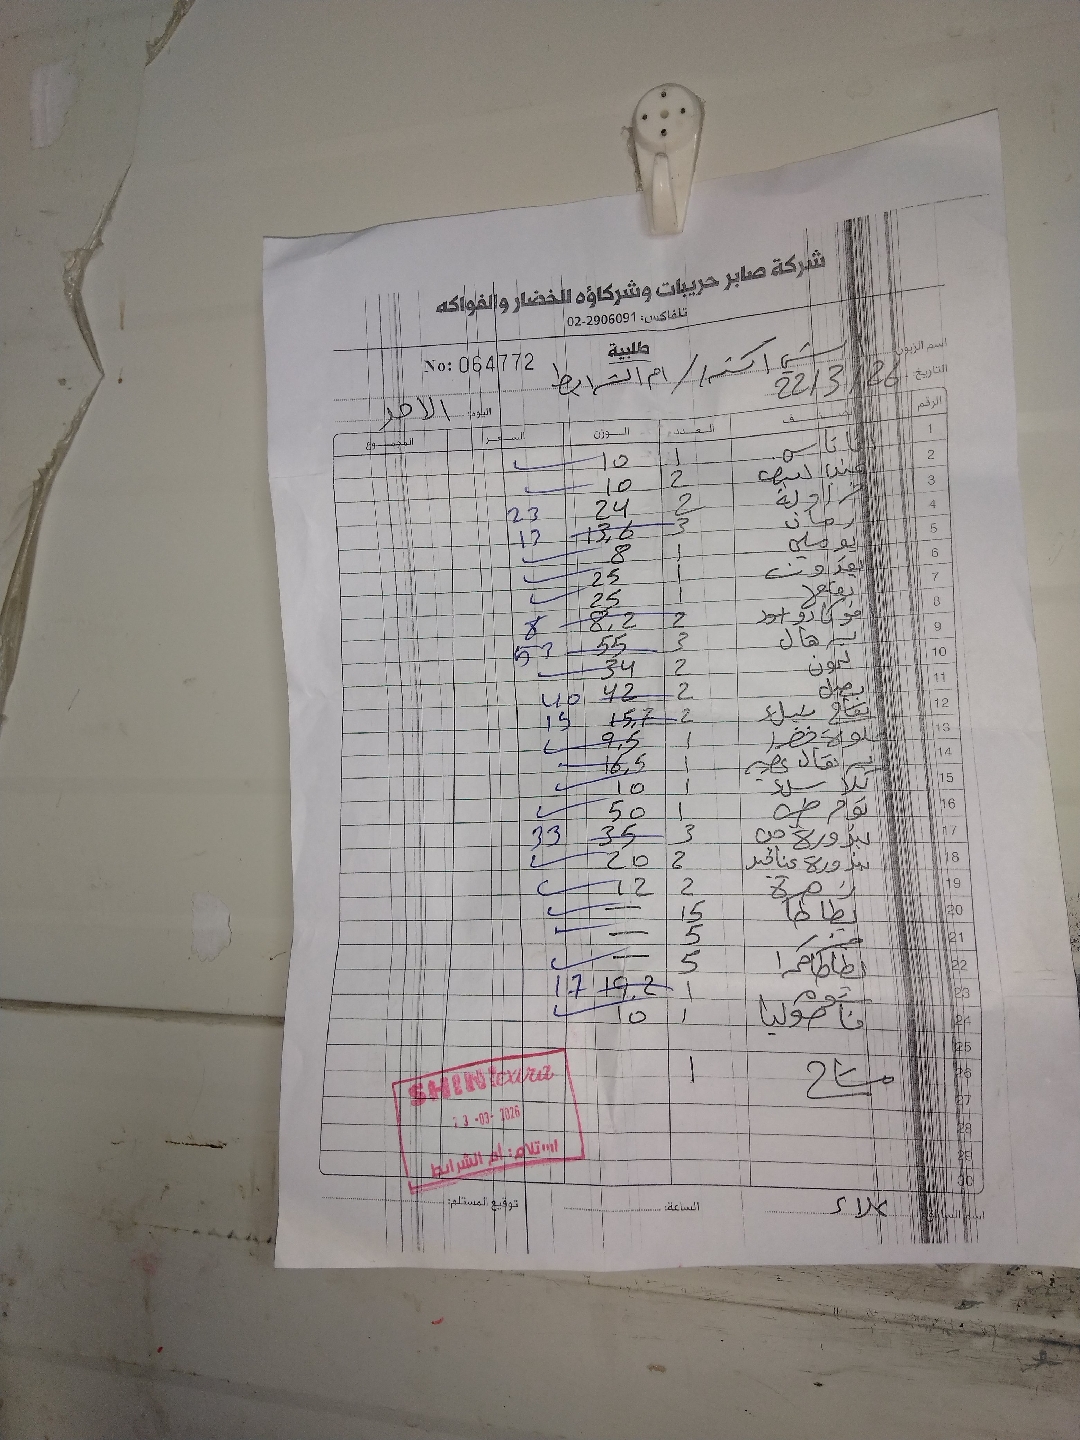 شركة صابر حريبات وشركاؤه للخضار والفواكه
تلفاكس: 02-2906091
طلبية
No: 064772
اسم الزبون: شيني اكسترا / ام الشرايط
التاريخ: 22/3/26
اليوم: الاحد
الرقم الصنف العدد الوزن السعر المجموع
1 اناناس 1 10
2 2 10
3 فراولة 2 24 23
4 رمان 3 13,6 13
5 بوملي 1 8
6 1 25
7 1 25
8 2 8,2 8
9 3 55 53
10 ليمون 2 34
11 بصل 2 42 40
12 تفاح 2 15,7 15
13 1 9,5
14 برتقال 1 16,5
15 1 10
16 ثوم 1 50
17 بندورة 3 35 33
18 بندورة عناقيد 2 20
19 2 12
20 بطاطا 15 —
21 5 —
22 بطاطا حمرا 5 —
23 ثوم 1 19,2 17
24 فاصوليا 1 10
25
26 1
27
28
29
30
SHINI extra
23 -03- 2026
استلام: أم الشرايط
اسم السائق: علاء
الساعة:
توقيع المستلم: